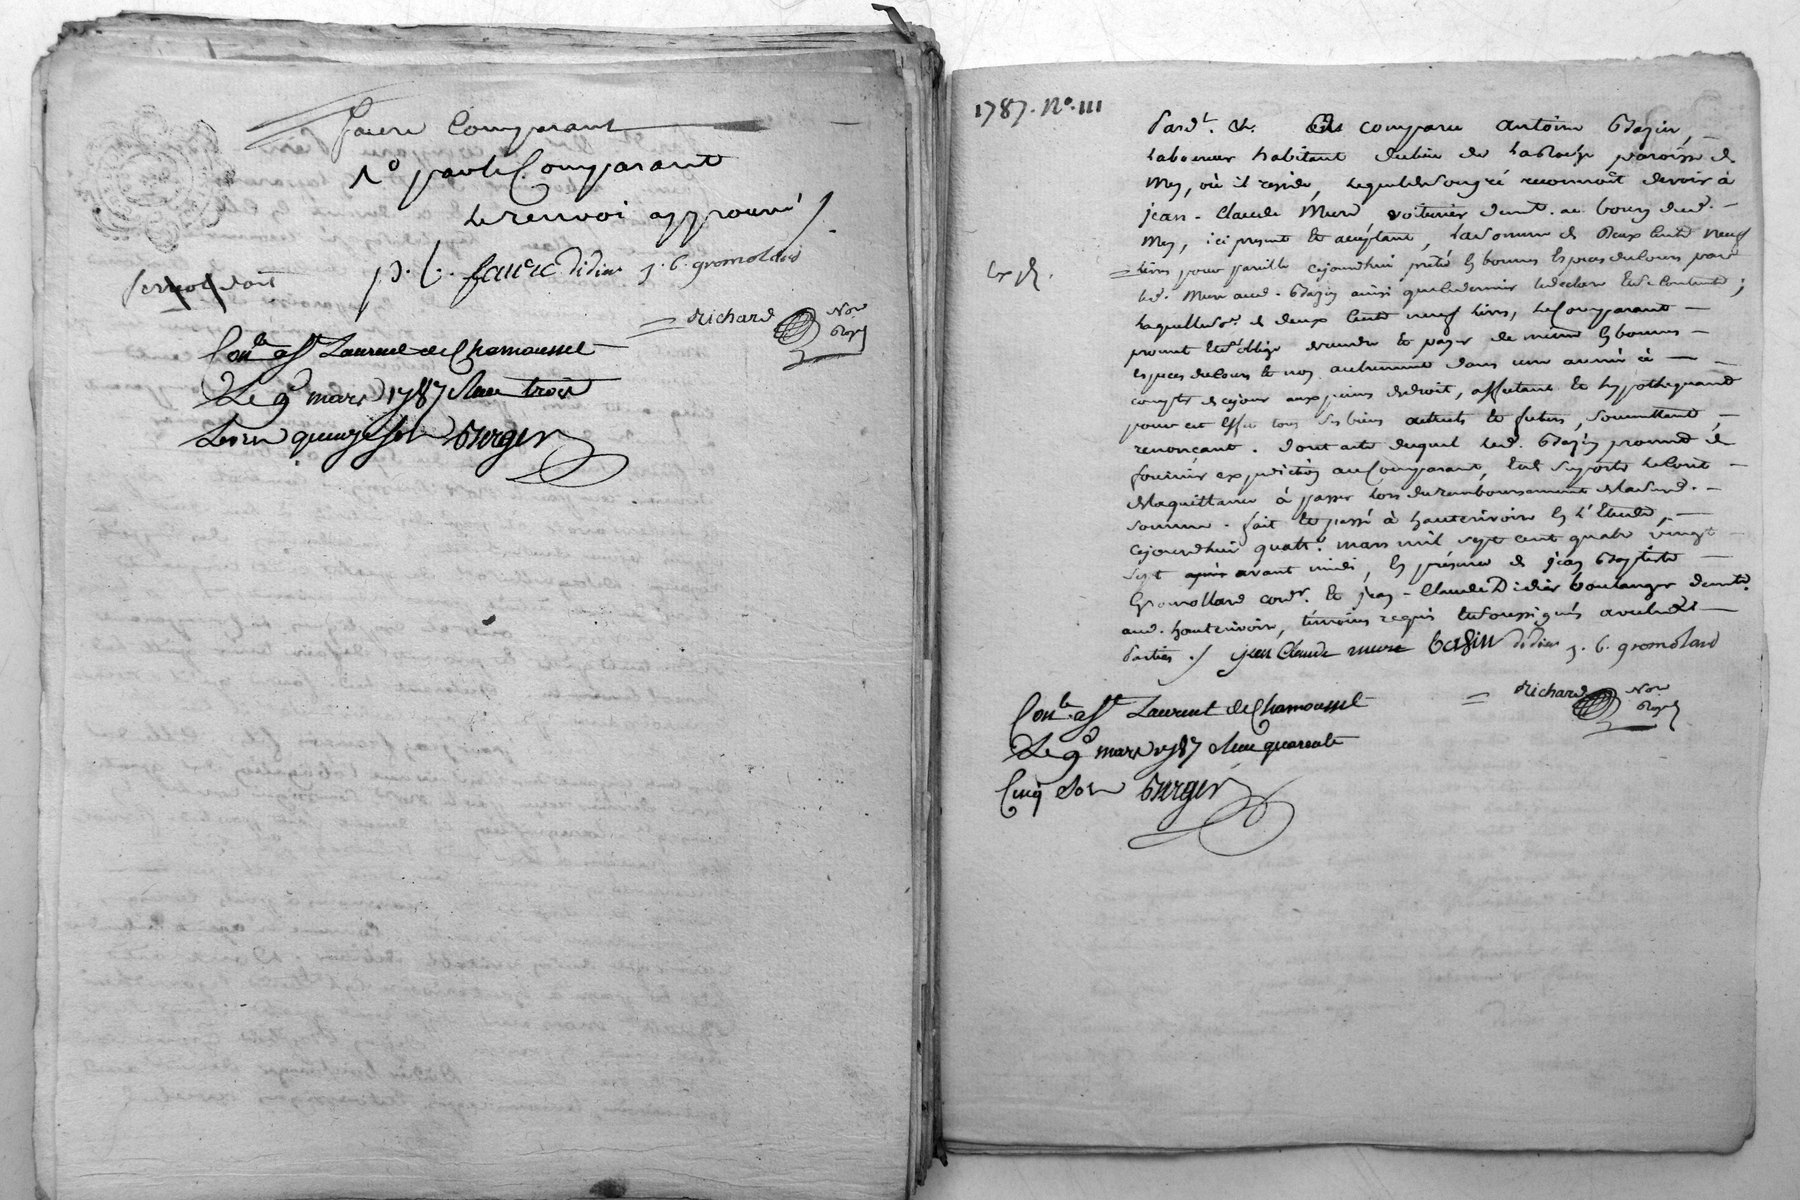 faure Comparant
1° par le Comparant
le renvoi approuvé /.
p. C. faure didier j. b. gromolard
= Richard No.re Royal
Con.lé a S.t Laurent de Chamousset
Le 9 mars 1787 Reçu trois
Livres quinze sols Berger
1787. N°. 111
Pard.t &. Est comparu antoine Bazin,
laboureur habitant du lieu de paroisse de
Mes, où il reside, lequel de son gré reconnoit devoir à
jean-Claude Mure voiturier dem.t au bourg dud.
Mes, ici present et acceptant, la somme de deux cents neuf
exp.
livres pour pareille cejourd'hui prêtée en bonnes especes du cours par
led. Mure aud. Bazin ainsi que ce dernier le declare et s'en contente;
laquelle so.e de deux cents neuf livres, le Comparant
promet et s'oblige de rendre et payer de même en bonnes
especes du cours et non autrement dans une année à
compter de ce jour aux peines de droit, affectant et hypothequant
pour cet effet tous ses biens actuels et futurs, soumettant,
renonçant. dont acte duquel led. Bazin promet de
fournir expedition au Comparant, et de suporter le cout
de la quittance à passer lors du remboursement de lad.
somme. fait et passé à hauterivoire en l'Etude,
cejourd'hui quatre mars mil sept cent quatre vingt
sept après avant midi, en présence de jean Baptiste
Gromollard cord.r et jean-Claude Didier boulanger dem.t
aud. hauterivoire, témoins requis et soussignés avec les
Parties ./ jean Claude mure bazin didier j. b. gromolard
= Richard No.re Royal
Con.lé a S.t Laurent de Chamousset
Le 9 mars 1787 Reçu quarante
Cinq sols Berger